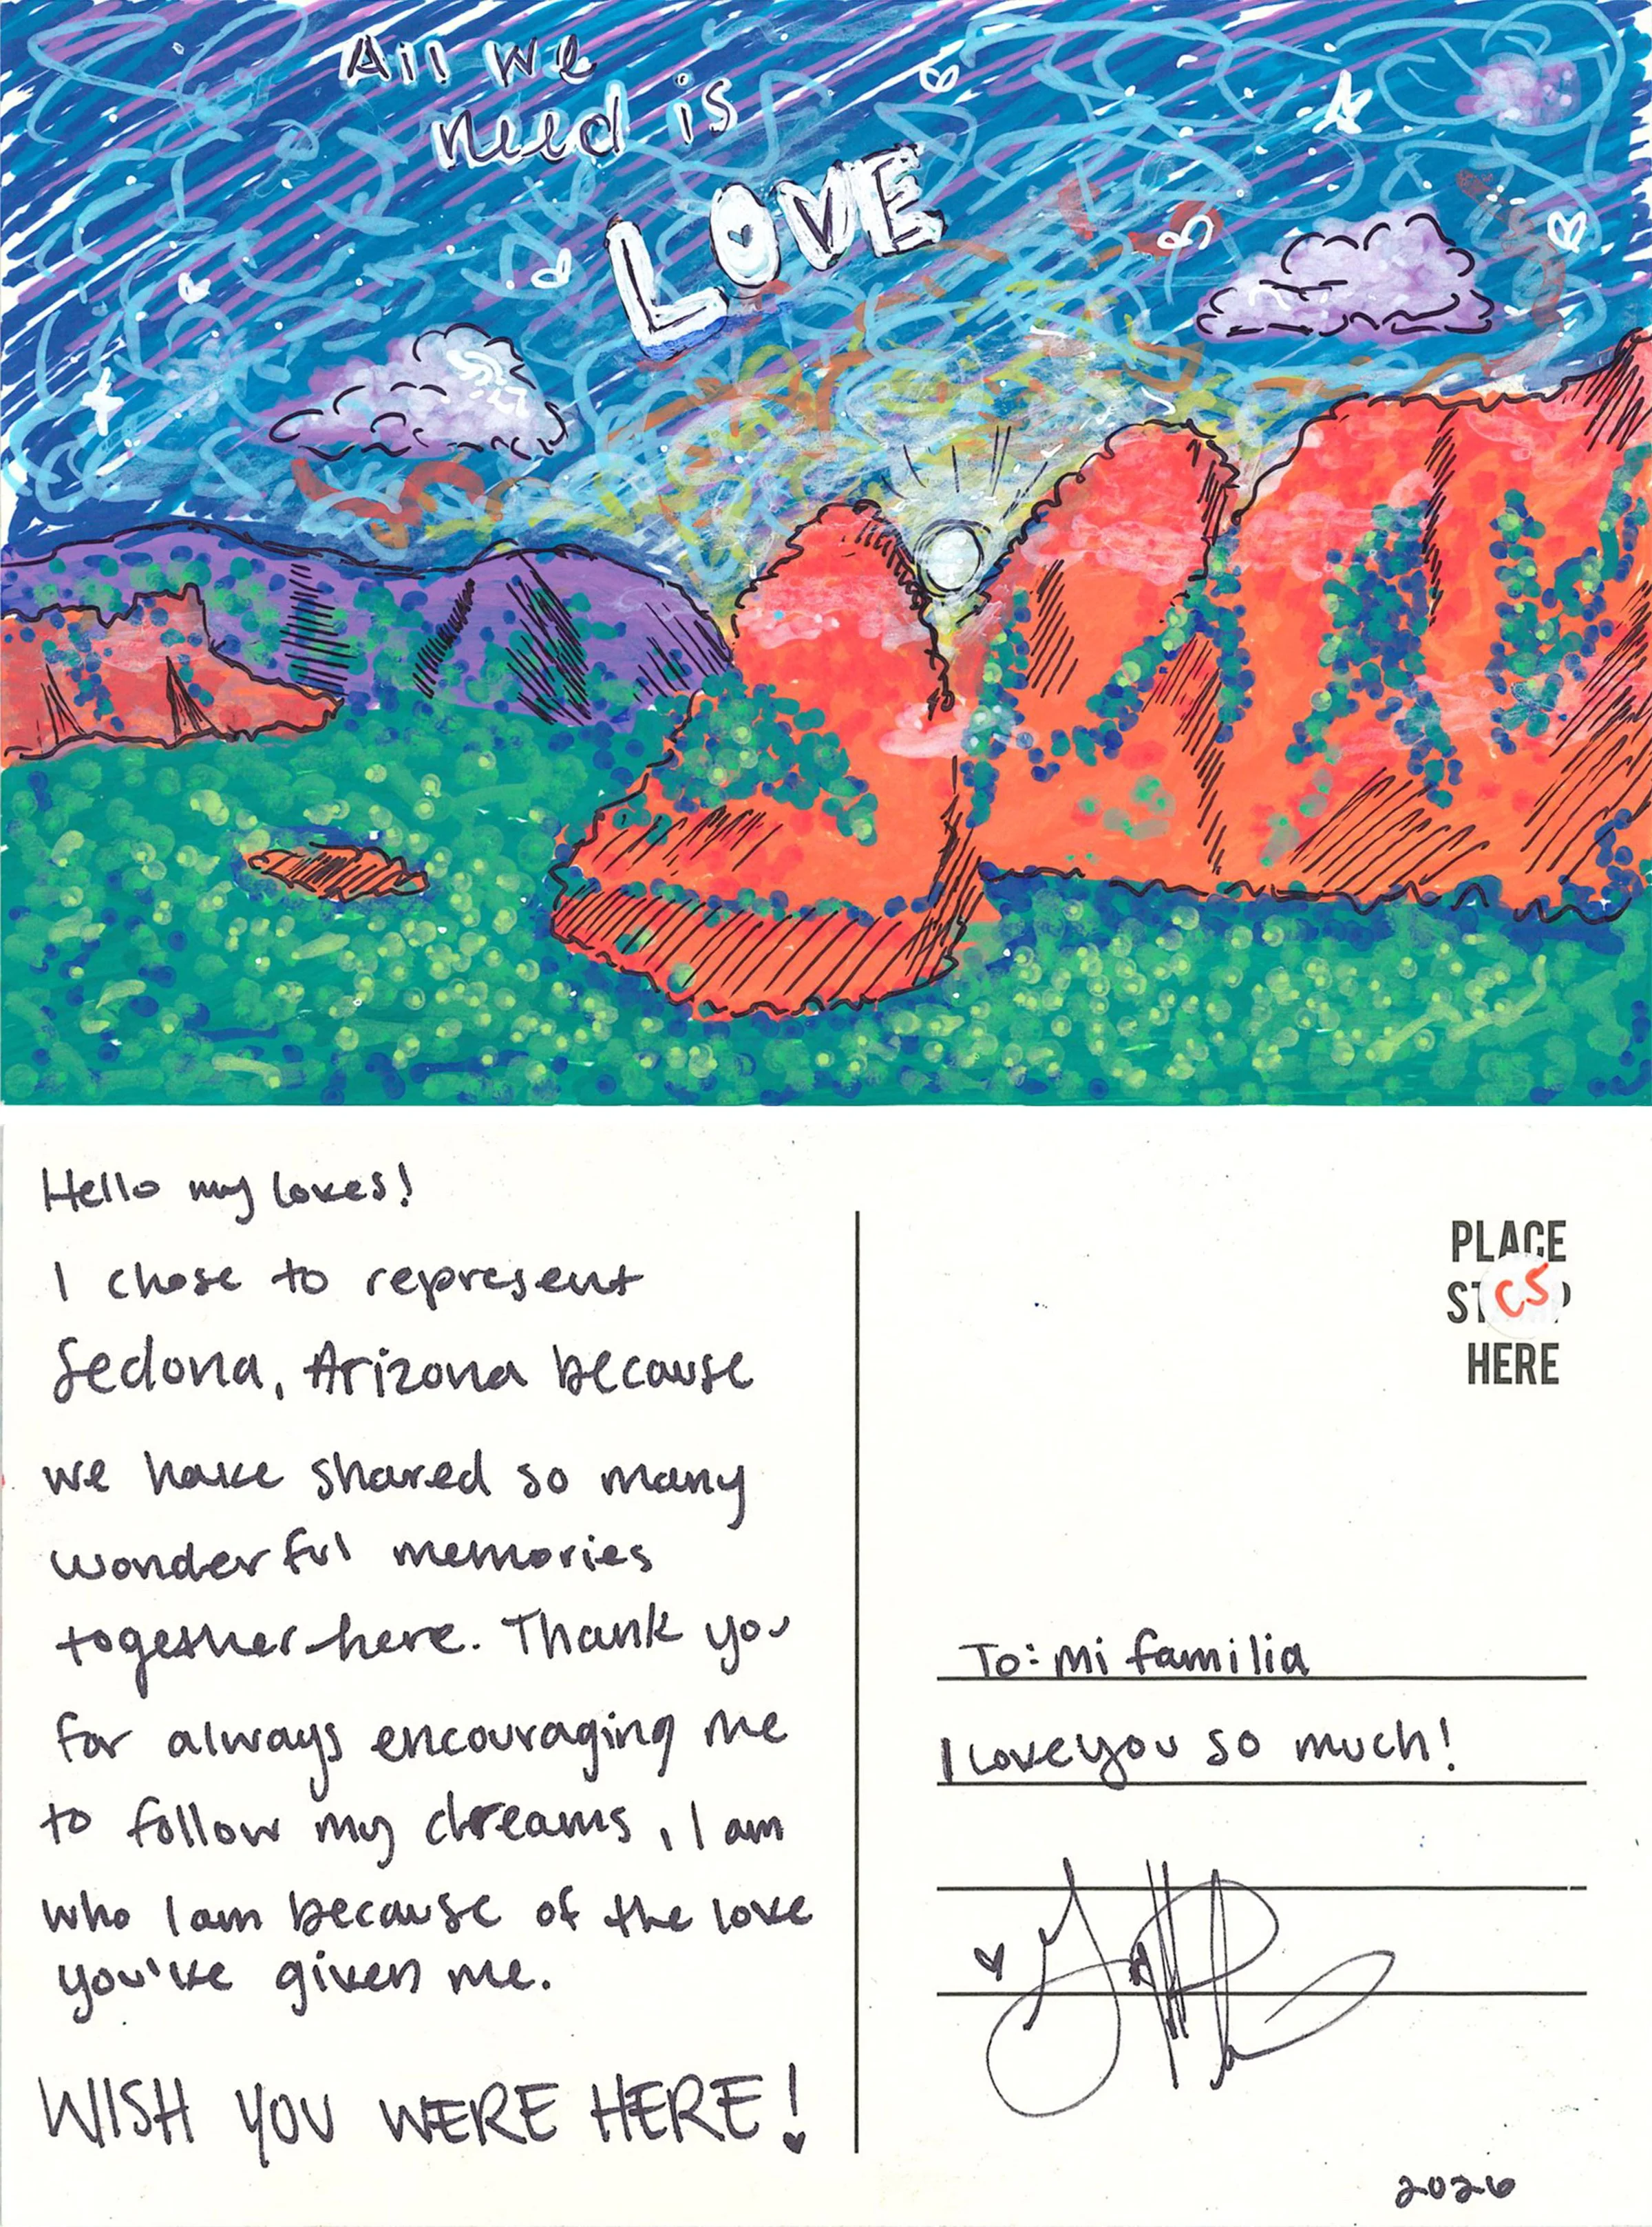 All we
need is
LOVE
Hello my loves!
I chose to represent
Sedona, Arizona because
we have shared so many
wonderful memories
together here. Thank you
for always encouraging me
to follow my dreams, I am
who I am because of the love
you've given me.
WISH YOU WERE HERE!
PLACE
CS
HERE
To: Mi familia
I love you so much!
2026